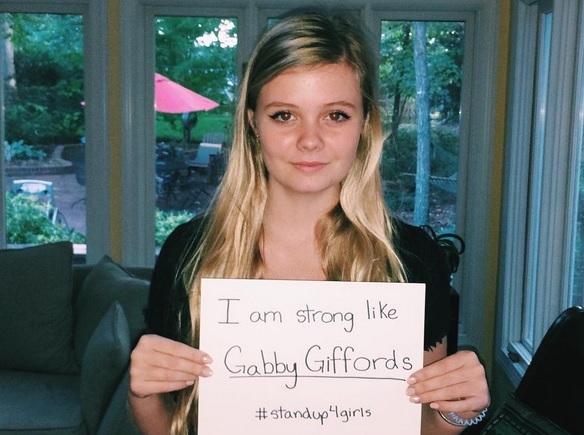 I am strong like
Gabby Giffords
#standup4girls